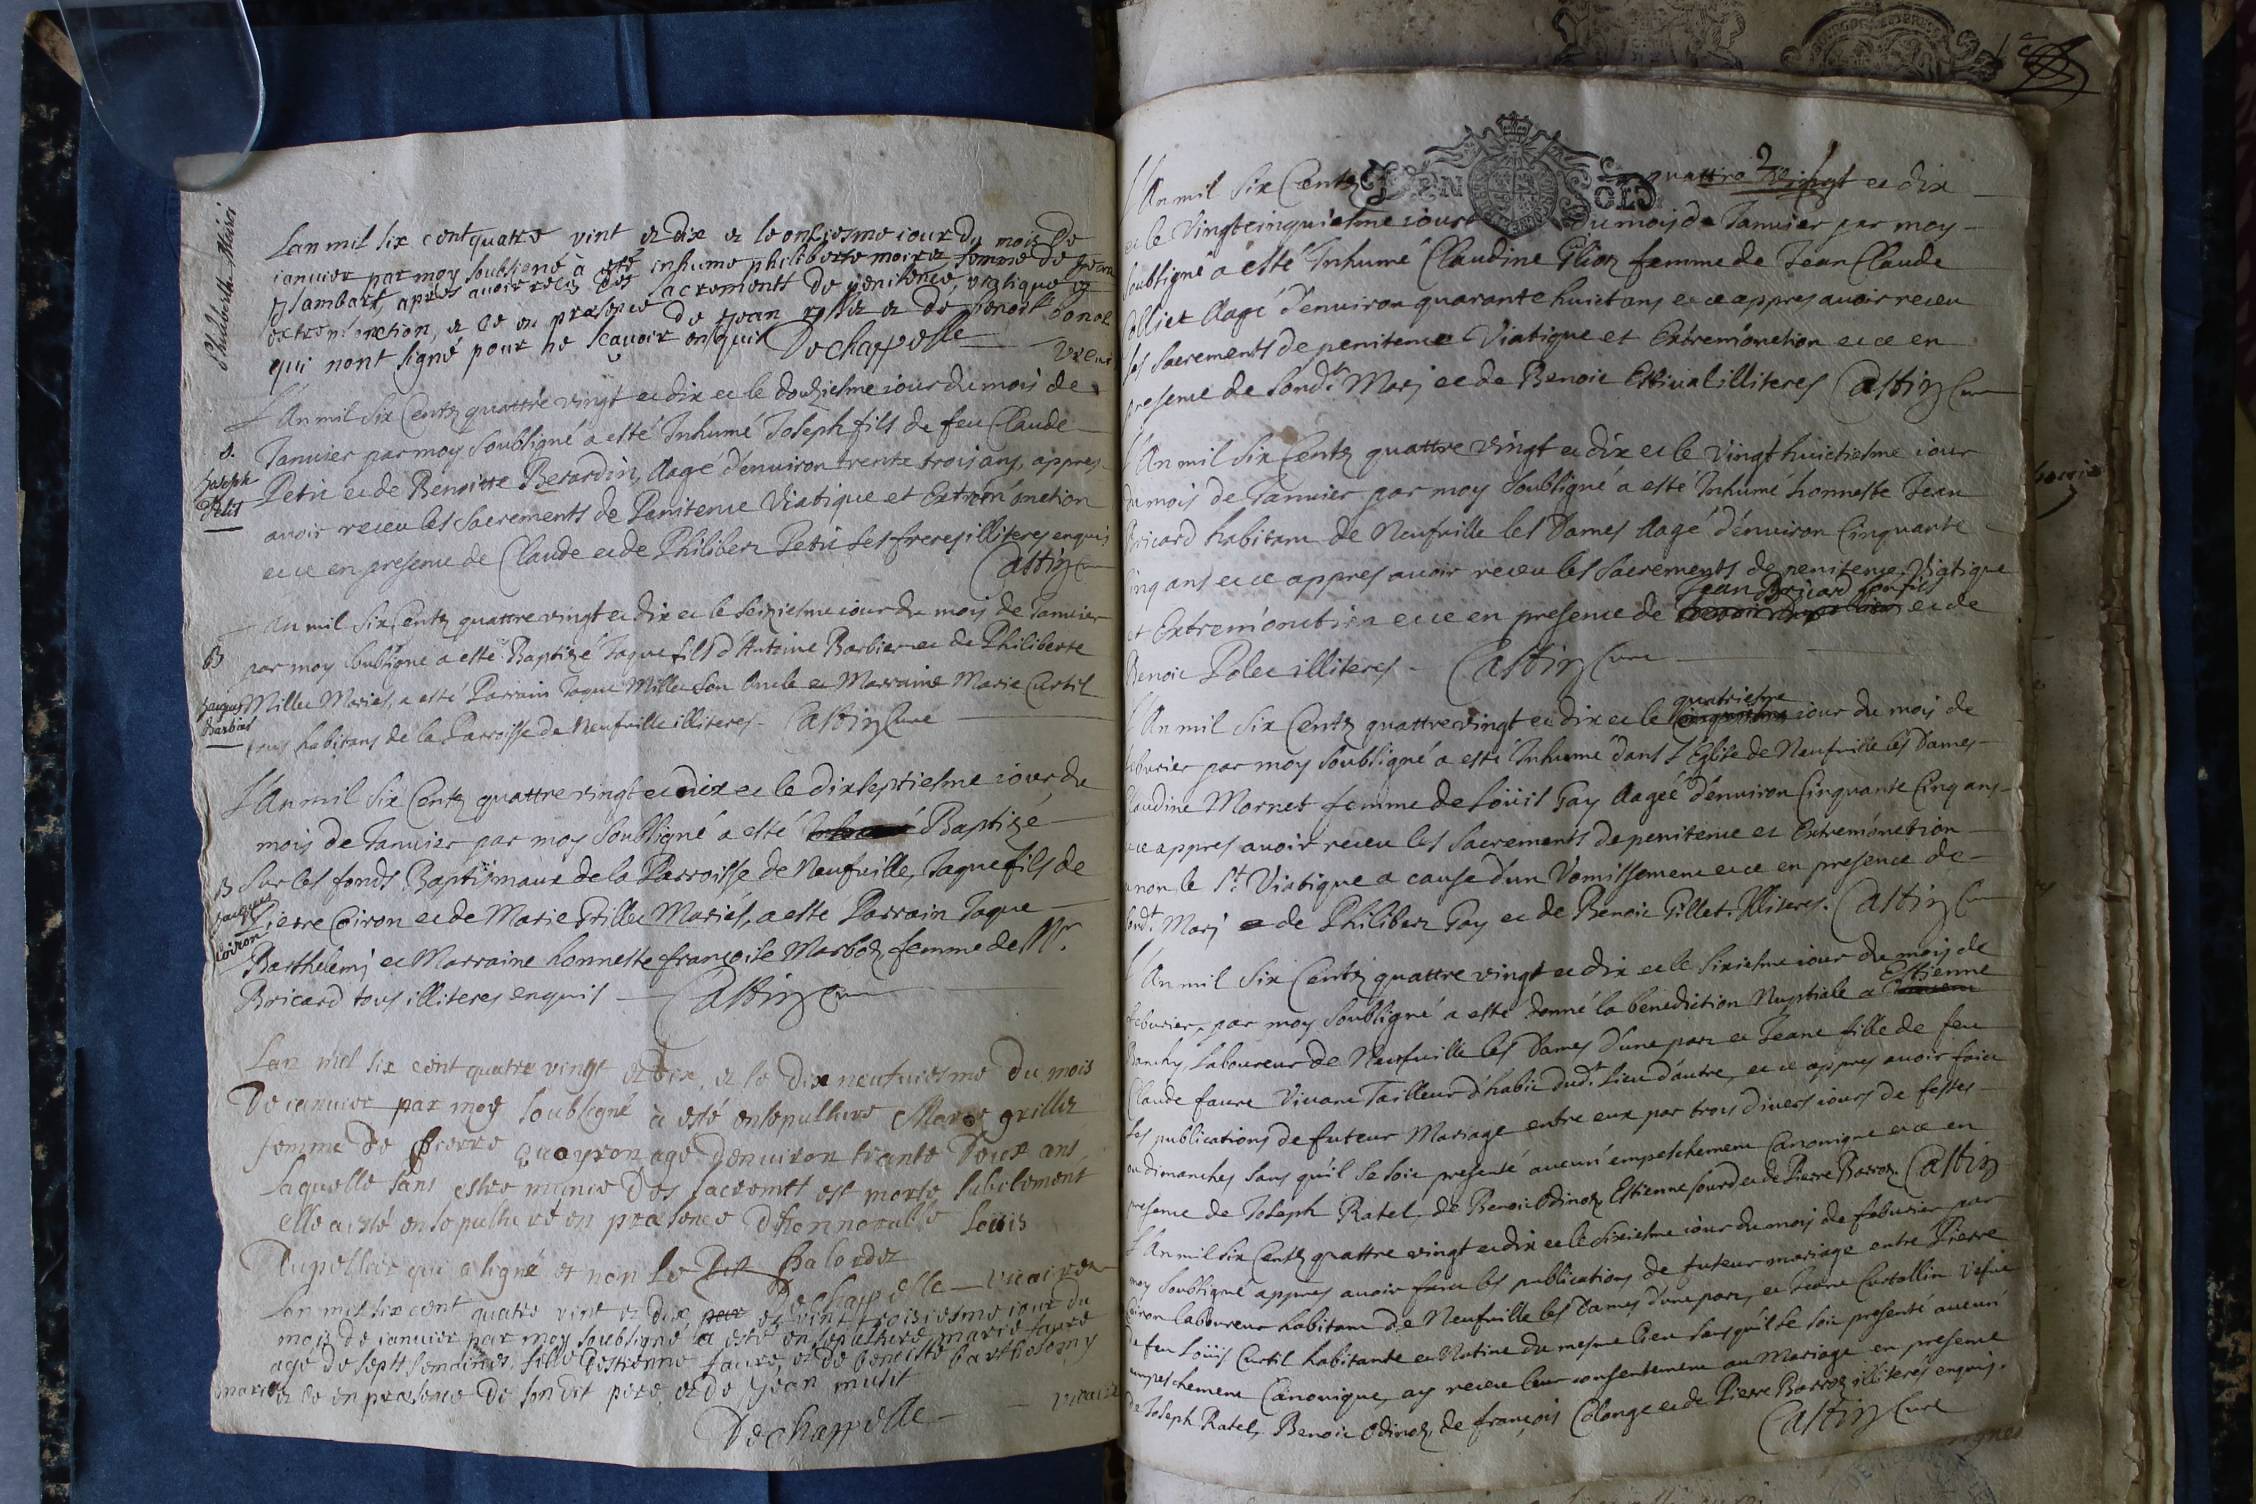 Philiberte Moiri
Lan mil six cent quatre vint et dix et le onziesme iour du mois de
ianvier par moy soubsigné à esté inhumé philiberte moire femme de Jean
Jambart, apres avoir reçu des sacrementt de penitence, viatique et
extreonction, et ce en presence de Jean et de benoist bonet
qui nont signé pour ne scavoir enquis Dechappelle
L'An mil Six Centz quattre vingt et dix et le douziesme iour du mois de
Janvier par moy Soubsigné a esté Inhumé Joseph fils de feu Claude
S.
Joseph
Petit
Petit et de Benoitte Berardin, Aagé d'environ trente trois ans, appres
avoir receu les Sacrements de Penitence Viatique et Extrem'onction
et ce en presence de Claude et de Philibert Petit ses freres illiteres enquis
Castin Cure
L'An mil Six Centz quattre vingt et dix et le Seiziesme iour du mois de Janvier
B
par moy soubsigné a esté Baptizé Jaque fils d'Antoine Barbier et de Philiberte
Jaques
Barbier
Millet Mariés, a esté Parrain Jaque Millet Son Oncle et Marraine Marie Curtil
tous habitans de la Parroisse de Neufville illiteres - Castin Curé
L'An mil Six Centz quattre vingt et dix et le dixseptiesme iour du
mois de Janvier par moy Soubsigné a esté Baptizé
B
Sur les fonds Baptismaux de la Parroisse de Neufville, Jaque fils de
Jacques
Coiron
Pierre Coiron et de Marie Grillet Mariés, a esté Parrain Jaque
Barthelemj et Marraine honneste françoise Marbot femme de Mr
Bricard tous illiteres enquis - Castin Cure
Lan mil six cent quatre vingt et dix, et le dix neufuiesme du mois
De ianvier par moy soubsigné à esté ensepulture Marie grillet
femme de pierre quoyron agé denviron trante Deux ans,
laquelle sans estre munie Des sacremtt est morte subitement
elle a esté ensepulturé en presence D'honnorable Loüis
Dupellier qui a signé et non le
Dechappelle - vicaire
Lan mil six cent quatre vint et dix, et vint troisiesme iour du
mois de ianvier par moy soubsigné a esté ensepulture marie faure
agé de septt semaines, fille destienne faure, et de benoiste barthelemy
marie
et ce en presence de son dit pere, et de Jean mulit
Dechappelle - vicaire
GEN SOLS
L'An mil Six Centz quattre Vingt et dix
et le Vingtcinquiesme iour du mois de Janvier par moy
Soubsigné a esté Inhumé Claudine Glion femme de Jean Claude
Colliet Aagé d'environ quarante huict ans et ce appres avoir receu
les Sacrements de penitence Viatique et Extrem'onction et ce en
presence de Sondt Mary et de Benoit Estival illiteres Castin Cure
L'An mil Six Centz quattre vingt et dix et le Vingt huictiesme iour
du mois de Janvier par moy Soubsigné a esté Inhumé honneste Jean
Bricard habitant de Neufville les Dames Aagé d'environ Cinquante
cinq ans et ce appres avoir receu les Sacrements de penitence Viatique
Jean Bricard son fils
et Extrem'onction et ce en presence de et de
Benoit Polet illiteres - Castin Cure
quatriesme
L'An mil Six Centz quattre vingt et dix et le iour du mois de
febvrier par moy Soubsigné a esté Inhumé dans L'Eglise de Neufville les Dames
Claudine Mornet femme de Loüis Gay Aagée d'environ Cinquante Cinq ans
et ce appres avoir receu les Sacrements de penitence et Extrem'onction
et non le St. Viatique a cause d'un Vomissement et ce en presence de
Sondt. Mary et de Philibert Gay et de Benoit Gillet. Illiteres. Castin Cure
L'An mil Six Centz quattre vingt et dix et le Sixiesme iour du mois de
Estienne
febvrier, par moy Soubsigné a esté donné la benediction Nuptiale a
Laboureur de Neufville les Dames d'une part et Jeane fille de feu
Claude faure Vivant Tailleur d'habit dudt. Lieu d'autre, et ce appres avoir faict
les publications de futeur Mariage entre eux par trois divers iours de festes
ou dimanches Sans qu'il Se Soit presenté aucun empeschement Canonique et ce en
presence de Joseph Ratel, de Benoit Odinot, Estienne sourd et de Pierre Barrot. Castin
L'An mil Six Centz quattre vingt et dix et le Sixiesme iour du mois de febvrier par
moy Soubsigné appres avoir faict les publications de futeur mariage entre Pierre
Coiron laboureur habitant de Neufville les Dames d'une part, et Jeane Curtallin Vefve
de feu Loüis Curtil habitante et Natine du mesme Lieu Sans qu'il Se Soit presenté aucun
empeschement Canonique, ay receu leur consentement au Mariage en presence
de Joseph Ratel, Benoit Odinot, de françois Colonge et de Pierre Barrot illiteres enquis.
Castin Curé